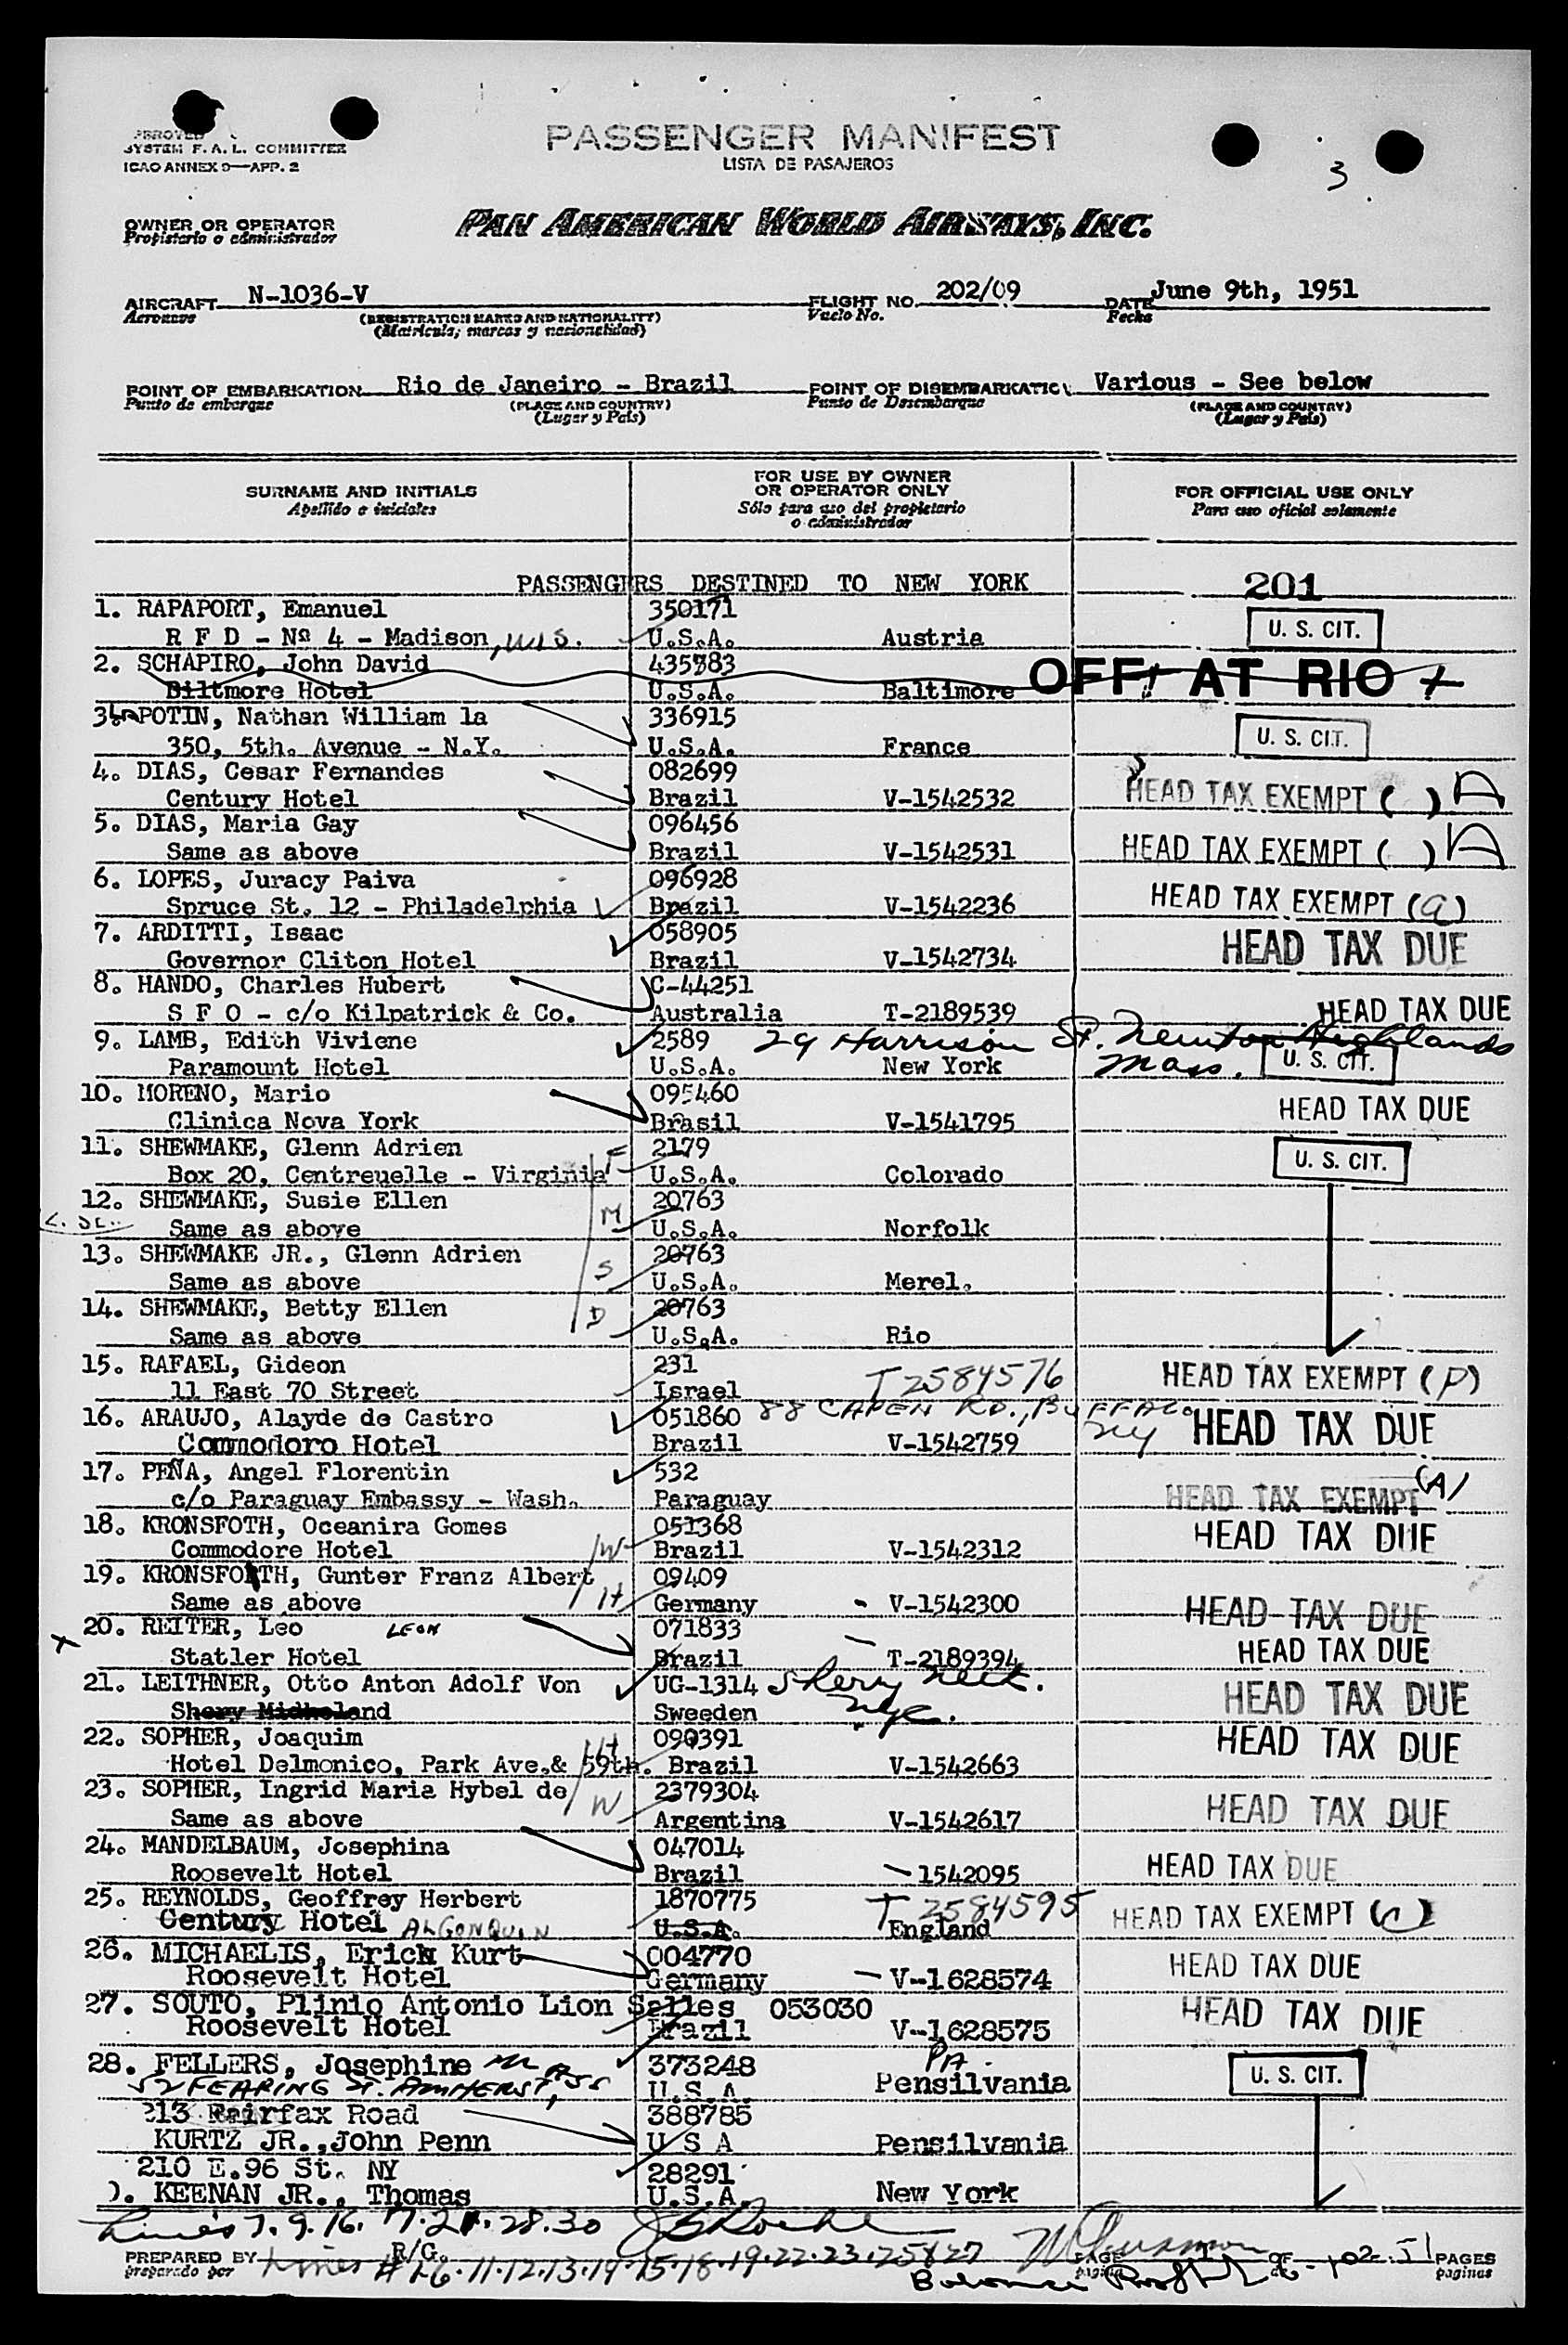 SYSTEM F. A. L. COMMITTEE
ICAO ANNEX 9—APP. 2
PASSENGER MANIFEST
LISTA DE PASAJEROS
3
OWNER OR OPERATOR
Propietario o administrador
PAN AMERICAN WORLD AIRWAYS, INC.
AIRCRAFT N-1036-V FLIGHT NO. 202/09 DATE June 9th, 1951
Aeronave (REGISTRATION MARKS AND NATIONALITY) Vuelo No. Fecha
(Matrícula, marcas y nacionalidad)
POINT OF EMBARKATION Rio de Janeiro - Brazil POINT OF DISEMBARKATION Various - See below
Punto de embarque (PLACE AND COUNTRY) Punto de Desembarque (PLACE AND COUNTRY)
(Lugar y País) (Lugar y País)
SURNAME AND INITIALS FOR USE BY OWNER OR OPERATOR ONLY FOR OFFICIAL USE ONLY
Apellido e iniciales Sólo para uso del propietario o administrador Para uso oficial solamente
PASSENGERS DESTINED TO NEW YORK 201
1. RAPAPORT, Emanuel 350171
R F D - Nº 4 - Madison, WIS. U.S.A. Austria U. S. CIT.
2. SCHAPIRO, John David 435783 OFF AT RIO
Biltmore Hotel U.S.A. Baltimore
3. POTIN, Nathan William la 336915
350, 5th. Avenue - N.Y. U.S.A. France U. S. CIT.
4. DIAS, Cesar Fernandes 082699
Century Hotel Brazil V-1542532 HEAD TAX EXEMPT ( ) A
5. DIAS, Maria Gay 096456
Same as above Brazil V-1542531 HEAD TAX EXEMPT ( ) A
6. LOPES, Juracy Paiva 096928
Spruce St. 12 - Philadelphia Brazil V-1542236 HEAD TAX EXEMPT (a)
7. ARDITTI, Isaac 058905
Governor Cliton Hotel Brazil V-1542734 HEAD TAX DUE
8. HANDO, Charles Hubert C-44251
S F O - c/o Kilpatrick & Co. Australia T-2189539 HEAD TAX DUE
9. LAMB, Edith Viviene 2589 29 Harrison St. Newton Highlands
Paramount Hotel U.S.A. New York Mass. U. S. CIT.
10. MORENO, Mario 095460
Clinica Nova York Brasil V-1541795 HEAD TAX DUE
11. SHEWMAKE, Glenn Adrien F 2179
Box 20, Centreuelle - Virginia U.S.A. Colorado U. S. CIT.
12. SHEWMAKE, Susie Ellen M 20763
Same as above U.S.A. Norfolk
13. SHEWMAKE JR., Glenn Adrien S 20763
Same as above U.S.A. Merel.
14. SHEWMAKE, Betty Ellen D 20763
Same as above U.S.A. Rio
15. RAFAEL, Gideon 231 T 2584576
11 East 70 Street Israel HEAD TAX EXEMPT (P)
16. ARAUJO, Alayde de Castro 051860 88 CAPEN RD., BUFFALO
Commodoro Hotel Brazil V-1542759 NY HEAD TAX DUE
17. PEÑA, Angel Florentin 532
c/o Paraguay Embassy - Wash. Paraguay HEAD TAX EXEMPT (A)
18. KRONSFOTH, Oceanira Gomes 051368
Commodore Hotel W Brazil V-1542312 HEAD TAX DUE
19. KRONSFOTH, Gunter Franz Albert 09409
Same as above H Germany V-1542300 HEAD TAX DUE
20. REITER, Leo LEON 071833
Statler Hotel Brazil T-2189394 HEAD TAX DUE
21. LEITHNER, Otto Anton Adolf Von UG-1314 Shery Neth.
Shery Midheland Sweeden NYC. HEAD TAX DUE
22. SOPHER, Joaquim H 090391
Hotel Delmonico, Park Ave.& 59th. Brazil V-1542663 HEAD TAX DUE
23. SOPHER, Ingrid Maria Hybel de W 2379304
Same as above Argentina V-1542617 HEAD TAX DUE
24. MANDELBAUM, Josephina 047014
Roosevelt Hotel Brazil 1542095 HEAD TAX DUE
25. REYNOLDS, Geoffrey Herbert 1870775 T 2584595
Century Hotel ALGONQUIN U.S.A. England HEAD TAX EXEMPT (c)
26. MICHAELIS, Erich Kurt 004770
Roosevelt Hotel Germany V-1628574 HEAD TAX DUE
27. SOUTO, Plinio Antonio Lion Salles 053030
Roosevelt Hotel Brazil V-1628575 HEAD TAX DUE
28. FELLERS, Josephine M 373248 PA.
52 FEARING ST. AMHERST, MASS U.S.A. Pensilvania U. S. CIT.
213 Fairfax Road 388785
KURTZ JR., John Penn U S A Pensilvania
210 E.96 St. NY 28291
). KEENAN JR., Thomas U.S.A. New York
Lines 7. 9. 16. 17. 21. 28. 30
PREPARED BY R/G. PAGE OF PAGES
preparado por Lines # 1.6.11.12.13.14.15.18.19.22.23.25&27 página de páginas